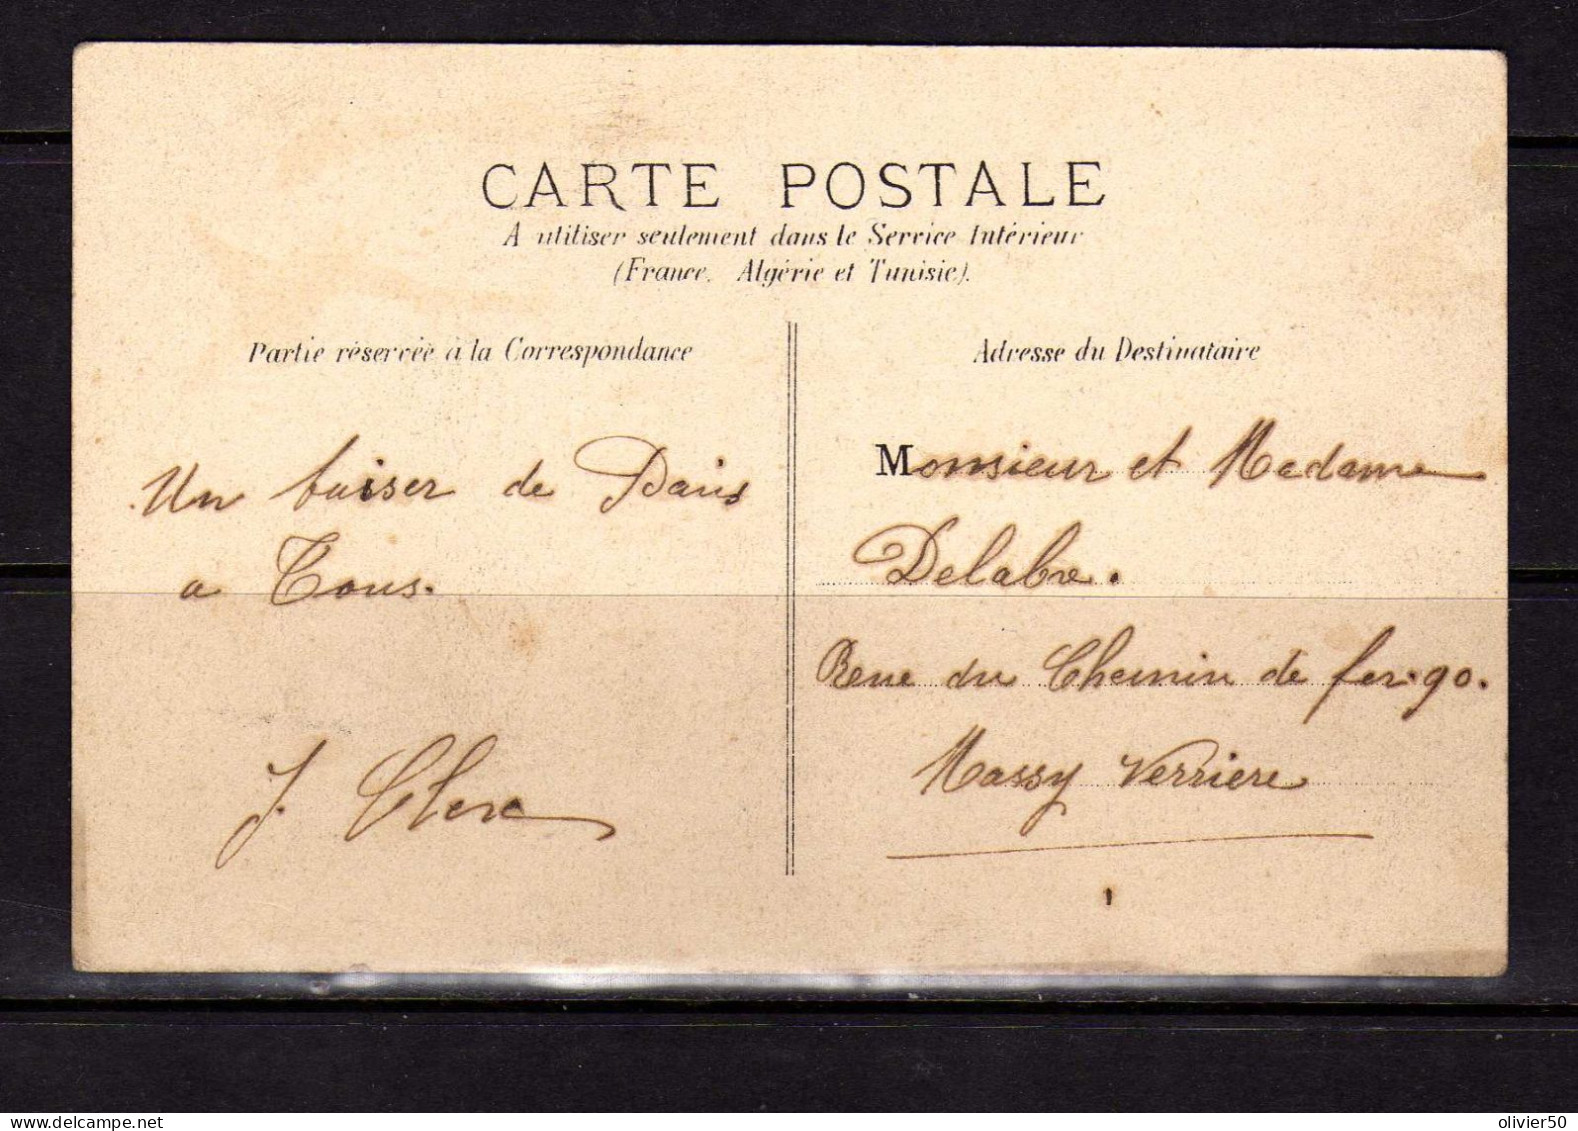 CARTE POSTALE
A utiliser seulement dans le Service Intérieur
(France, Algérie et Tunisie).
Partie réservée à la Correspondance
Un baiser de Paris
a Tous.
J. Clerc
Adresse du Destinataire
Monsieur et Madame
Delabre.
Rue du Chemin de fer. 90.
Massy Verriere
olivier50